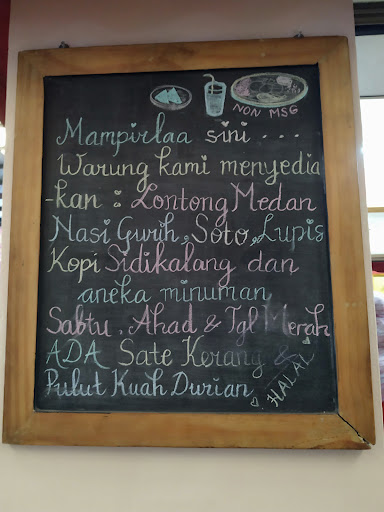 NON MSG
Mampirlaa sini ...
Warung kami menyedia
-kan : Lontong Medan
Nasi Gurih, Soto, Lupis
Kopi Sidikalang dan
aneka minuman
Sabtu, Ahad & Tgl Merah
ADA Sate Kerang &
Pulut Kuah Durian
HALAL